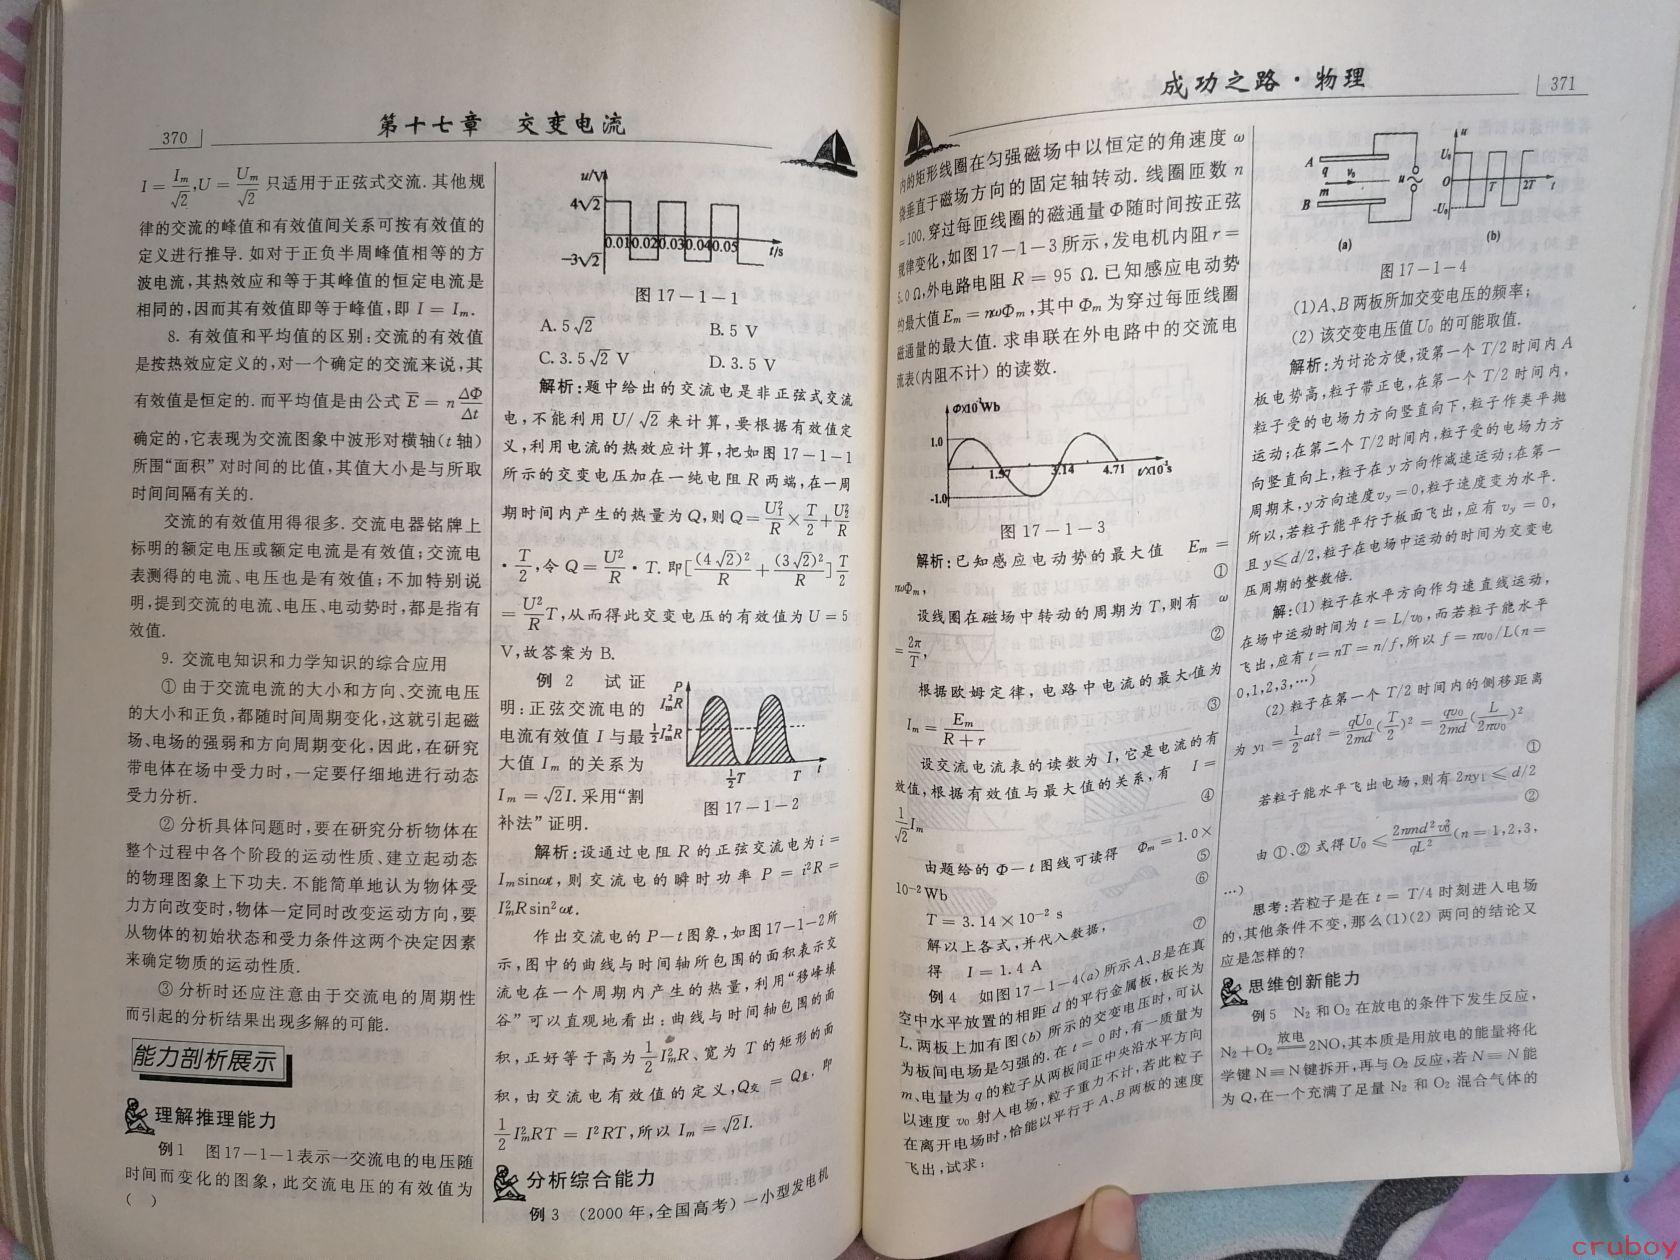 370
第十七章 交变电流
I = Im/√2, U = Um/√2 只适用于正弦式交流.其他规
律的交流的峰值和有效值间关系可按有效值的
定义进行推导.如对于正负半周峰值相等的方
波电流,其热效应和等于其峰值的恒定电流是
相同的,因而其有效值即等于峰值,即 I = Im.
8. 有效值和平均值的区别:交流的有效值
是按热效应定义的,对一个确定的交流来说,其
有效值是恒定的.而平均值是由公式 E̅ = n ΔΦ/Δt
确定的,它表现为交流图象中波形对横轴(t 轴)
所围“面积”对时间的比值,其值大小是与所取
时间间隔有关的.
交流的有效值用得很多.交流电器铭牌上
标明的额定电压或额定电流是有效值;交流电
表测得的电流、电压也是有效值;不加特别说
明,提到交流的电流、电压、电动势时,都是指有
效值.
9. 交流电知识和力学知识的综合应用
① 由于交流电流的大小和方向、交流电压
的大小和正负,都随时间周期变化,这就引起磁
场、电场的强弱和方向周期变化,因此,在研究
带电体在场中受力时,一定要仔细地进行动态
受力分析.
② 分析具体问题时,要在研究分析物体在
整个过程中各个阶段的运动性质、建立起动态
的物理图象上下功夫.不能简单地认为物体受
力方向改变时,物体一定同时改变运动方向,要
从物体的初始状态和受力条件这两个决定因素
来确定物质的运动性质.
③ 分析时还应注意由于交流电的周期性
而引起的分析结果出现多解的可能.
能力剖析展示
理解推理能力
例1 图17-1-1表示一交流电的电压随
时间而变化的图象,此交流电压的有效值为
( )
u/V
4√2
0.01 0.02 0.03 0.04 0.05
t/s
-3√2
图 17-1-1
A. 5√2 B. 5 V
C. 3.5√2 V D. 3.5 V
解析:题中给出的交流电是非正弦式交流
电,不能利用 U/√2 来计算,要根据有效值定
义,利用电流的热效应计算,把如图 17-1-1
所示的交变电压加在一纯电阻 R 两端,在一周
期时间内产生的热量为Q,则 Q = U₁²/R × T/2 + U₂²/R
· T/2,令 Q = U²/R · T. 即[(4√2)²/R + (3√2)²/R] T/2
= U²/R T,从而得此交变电压的有效值为 U = 5
V,故答案为 B.
例 2 试证
明:正弦交流电的
电流有效值 I 与最
大值 Im 的关系为
Im = √2I. 采用“割
补法”证明.
P
I²mR
½I²mR
½T
T
t
图 17-1-2
解析:设通过电阻 R 的正弦交流电为 i =
Imsinωt,则交流电的瞬时功率 P = i²R =
I²mRsin²ωt.
作出交流电的 P-t图象,如图17-1-2所
示,图中的曲线与时间轴所包围的面积表示交
流电在一个周期内产生的热量,利用“移峰填
谷”可以直观地看出:曲线与时间轴包围的面
积,正好等于高为 ½I²mR、宽为 T 的矩形的面
积,由交流电有效值的定义,Q交 = Q直,即
½I²mRT = I²RT,所以 Im = √2I.
分析综合能力
例3 (2000 年,全国高考) 一小型发电机
成功之路·物理
371
内的矩形线圈在匀强磁场中以恒定的角速度 ω
绕垂直于磁场方向的固定轴转动.线圈匝数 n
=100.穿过每匝线圈的磁通量 Φ 随时间按正弦
规律变化,如图17-1-3所示,发电机内阻 r =
5.0 Ω,外电路电阻 R = 95 Ω.已知感应电动势
的最大值 Em = nωΦm,其中 Φm 为穿过每匝线圈
磁通量的最大值.求串联在外电路中的交流电
流表(内阻不计)的读数.
1.0
-1.0
1.57
3.14
4.71
图 17-1-3
解析:已知感应电动势的最大值 Em =
nωΦm, ①
设线圈在磁场中转动的周期为 T,则有 ω
= 2π/T, ②
根据欧姆定律,电路中电流的最大值为
Im = Em/(R + r) ③
设交流电流表的读数为 I,它是电流的有
效值,根据有效值与最大值的关系,有 I =
1/√2 Im ④
由题给的 Φ-t 图线可读得 Φm = 1.0×
10⁻² Wb ⑤
T = 3.14 × 10⁻² s ⑥
解以上各式,并代入数据,
得 I = 1.4 A ⑦
例 4 如图 17-1-4(a) 所示 A、B是在真
空中水平放置的相距 d 的平行金属板,板长为
L,两板上加有图(b) 所示的交变电压时,可认
为板间电场是匀强的.在 t = 0 时,有一质量为
m、电量为 q 的粒子从两板间正中央沿水平方向
以速度 v₀ 射人电场,粒子重力不计,若此粒子
在离开电场时,恰能以平行于 A、B 两板的速度
飞出,试求:
A
q
v₀
m
B
u
(a)
u
U₀
O
-U₀
T
2T
t
(b)
图 17-1-4
(1)A、B两板所加交变电压的频率;
(2) 该交变电压值 U₀ 的可能取值.
解析:为讨论方便,设第一个 T/2 时间内 A
板电势高,粒子带正电,在第一个 T/2 时间内,
粒子受的电场力方向竖直向下,粒子作类平抛
运动;在第二个 T/2 时间内,粒子受的电场力方
向竖直向上,粒子在 y 方向作减速运动;在第一
周期末,y方向速度vy = 0,粒子速度变为水平.
所以,若粒子能平行于板面飞出,应有 vy = 0,
且 y ≤ d/2,粒子在电场中运动的时间为交变电
压周期的整数倍.
解:(1) 粒子在水平方向作匀速直线运动,
在场中运动时间为 t = L/v₀,而若粒子能水平
飞出,应有 t = nT = n/f,所以 f = nv₀/L(n =
0,1,2,3,…)
(2) 粒子在第一个 T/2 时间内的侧移距离
为 y₁ = ½at₁² = qU₀/2md (T/2)² = qU₀/2md (L/2nv₀)²
①
若粒子能水平飞出电场,则有 2ny₁ ≤ d/2
②
由 ①、② 式得 U₀ ≤ 2nmd²v₀²/qL² (n = 1,2,3,
…)
思考:若粒子是在 t = T/4 时刻进人电场
的,其他条件不变,那么(1)(2) 两问的结论又
应是怎样的?
思维创新能力
例 5 N₂ 和 O₂ 在放电的条件下发生反应,
N₂ + O₂ 放电 2NO,其本质是用放电的能量将化
学键 N≡N键拆开,再与 O₂ 反应,若 N≡N能
为 Q,在一个充满了足量 N₂ 和 O₂ 混合气体的
cruboy